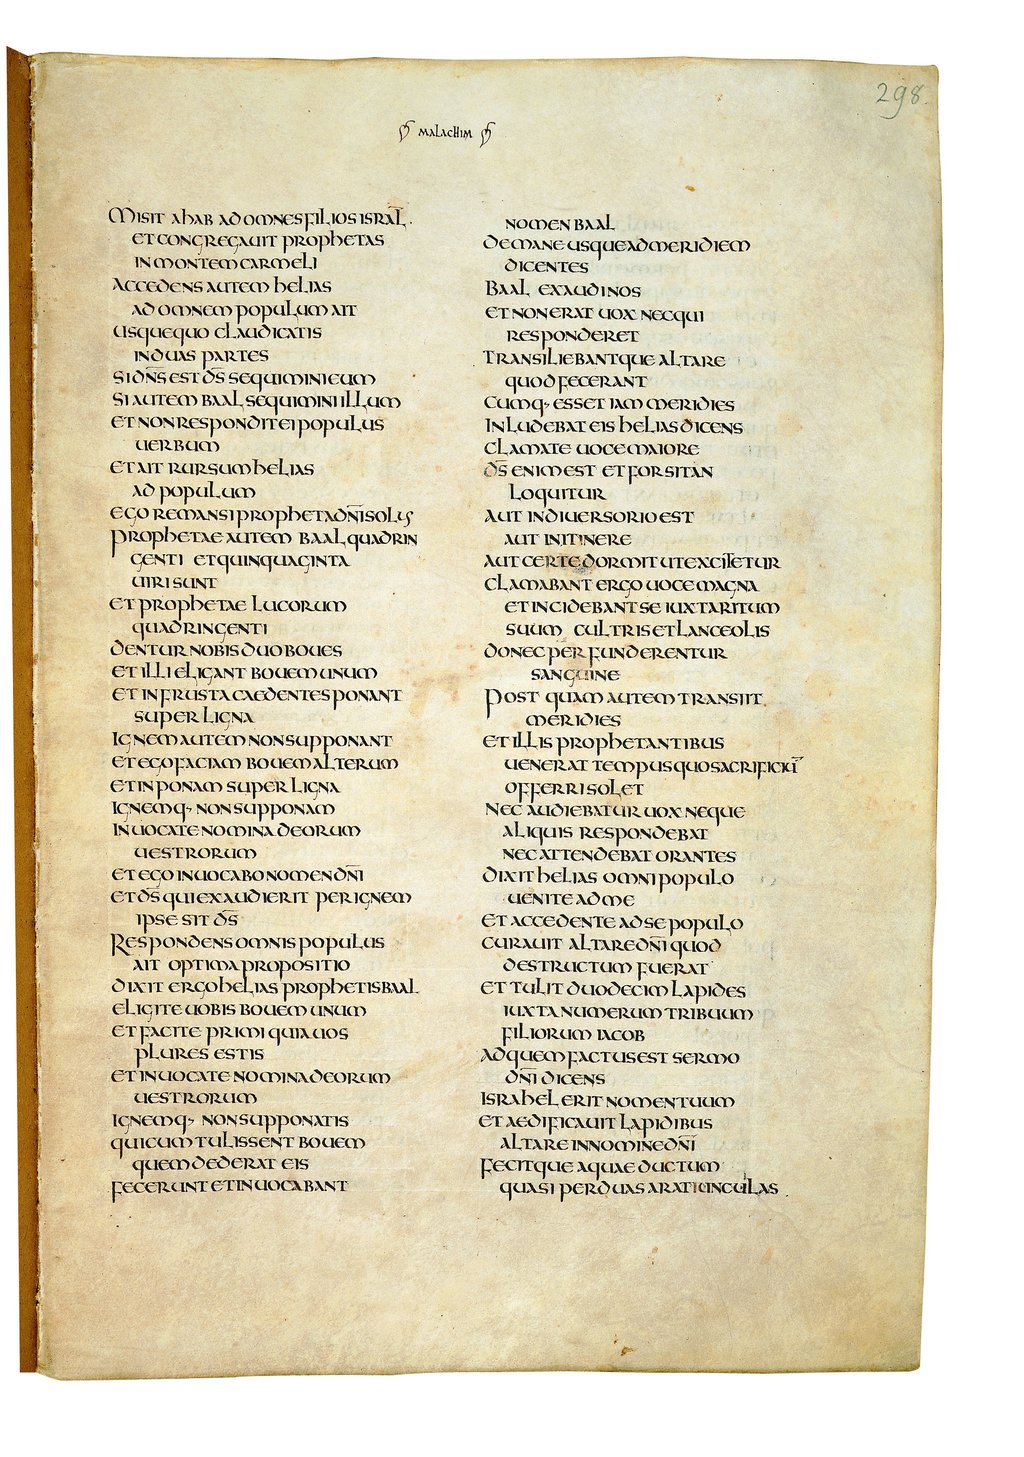 298.
MALACHIM
MISIT AHAB AD OMNES FILIOS ISRAL̄.
ET CONGREGAUIT PROPHETAS
IN MONTEM CARMELI
ACCEDENS AUTEM HELIAS
AD OMNEM POPULUM AIT
USQUEQUO CLAUDICATIS
IN DUAS PARTES
SI DN̄S EST D̄S SEQUIMINI EUM
SI AUTEM BAAL SEQUIMINI ILLUM
ET NON RESPONDIT EI POPULUS
UERBUM
ET AIT RURSUM HELIAS
AD POPULUM
EGO REMANSI PROPHETA DN̄I SOLUS
PROPHETAE AUTEM BAAL QUADRIN
GENTI ET QUINQUAGINTA
UIRI SUNT
ET PROPHETAE LUCORUM
QUADRINGENTI
DENTUR NOBIS DUO BOUES
ET ILLI ELIGANT BOUEM UNUM
ET IN FRUSTA CAEDENTES PONANT
SUPER LIGNA
IGNEM AUTEM NON SUPPONANT
ET EGO FACIAM BOUEM ALTERUM
ET INPONAM SUPER LIGNA
IGNEMQ· NON SUPPONAM
INUOCATE NOMINA DEORUM
UESTRORUM
ET EGO INUOCABO NOMEN DN̄I
ET D̄S QUI EXAUDIERIT PER IGNEM
IPSE SIT D̄S
RESPONDENS OMNIS POPULUS
AIT OPTIMA PROPOSITIO
DIXIT ERGO HELIAS PROPHETIS BAAL
ELIGITE UOBIS BOUEM UNUM
ET FACITE PRIMI QUIA UOS
PLURES ESTIS
ET INUOCATE NOMINA DEORUM
UESTRORUM
IGNEMQ· NON SUPPONATIS
QUI CUM TULISSENT BOUEM
QUEM DEDERAT EIS
FECERUNT ET INUOCABANT
NOMEN BAAL
DE MANE USQUE AD MERIDIEM
DICENTES
BAAL EXAUDI NOS
ET NON ERAT UOX NEC QUI
RESPONDERET
TRANSILIEBANTQUE ALTARE
QUOD FECERANT
CUMQ· ESSET IAM MERIDIES
INLUDEBAT EIS HELIAS DICENS
CLAMATE UOCE MAIORE
D̄S ENIM EST ET FORSITAN
LOQUITUR
AUT IN DIUERSORIO EST
AUT IN ITINERE
AUT CERTE DORMIT UT EXCITETUR
CLAMABANT ERGO UOCE MAGNA
ET INCIDEBANT SE IUXTA RITUM
SUUM CULTRIS ET LANCEOLIS
DONEC PERFUNDERENTUR
SANGUINE
POST QUAM AUTEM TRANSIIT
MERIDIES
ET ILLIS PROPHETANTIBUS
UENERAT TEMPUS QUO SACRIFICIŪ
OFFERRI SOLET
NEC AUDIEBATUR UOX NEQUE
ALIQUIS RESPONDEBAT
NEC ATTENDEBAT ORANTES
DIXIT HELIAS OMNI POPULO
UENITE AD ME
ET ACCEDENTE AD SE POPULO
CURAUIT ALTARE DN̄I QUOD
DESTRUCTUM FUERAT
ET TULIT DUODECIM LAPIDES
IUXTA NUMERUM TRIBUUM
FILIORUM IACOB
AD QUEM FACTUS EST SERMO
DN̄I DICENS
ISRAHEL ERIT NOMEN TUUM
ET AEDIFICAUIT LAPIDIBUS
ALTARE IN NOMINE DN̄I
FECITQUE AQUAE DUCTUM
QUASI PER DUAS ARATIUNCULAS